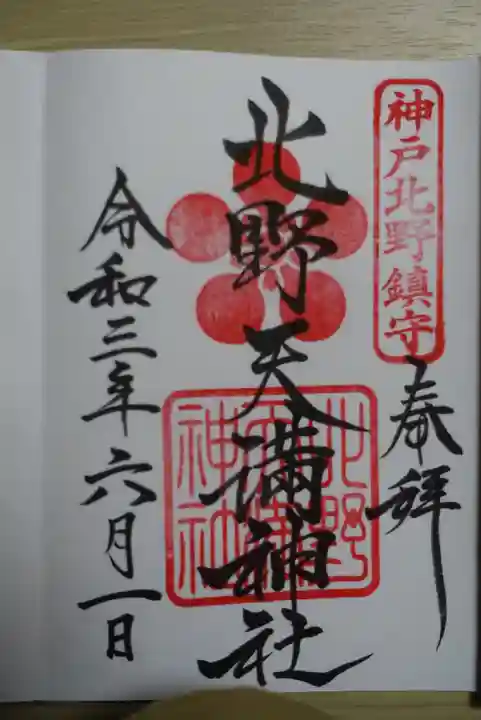 神戸北野鎮守
奉拝
北野天満神社
北野
天満
神社
令和三年六月一日